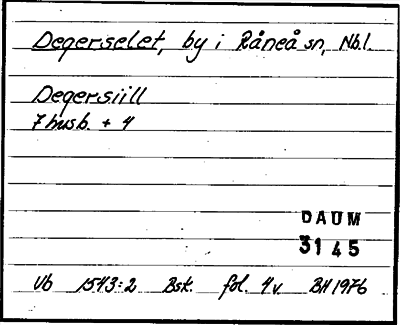 Degerselet, by i Råneå sn, Nb.l.
Degersiill
7 husb. + 4
DAUM
3145
Vb 1543:2 Bsk. fol. 4v BH 1976